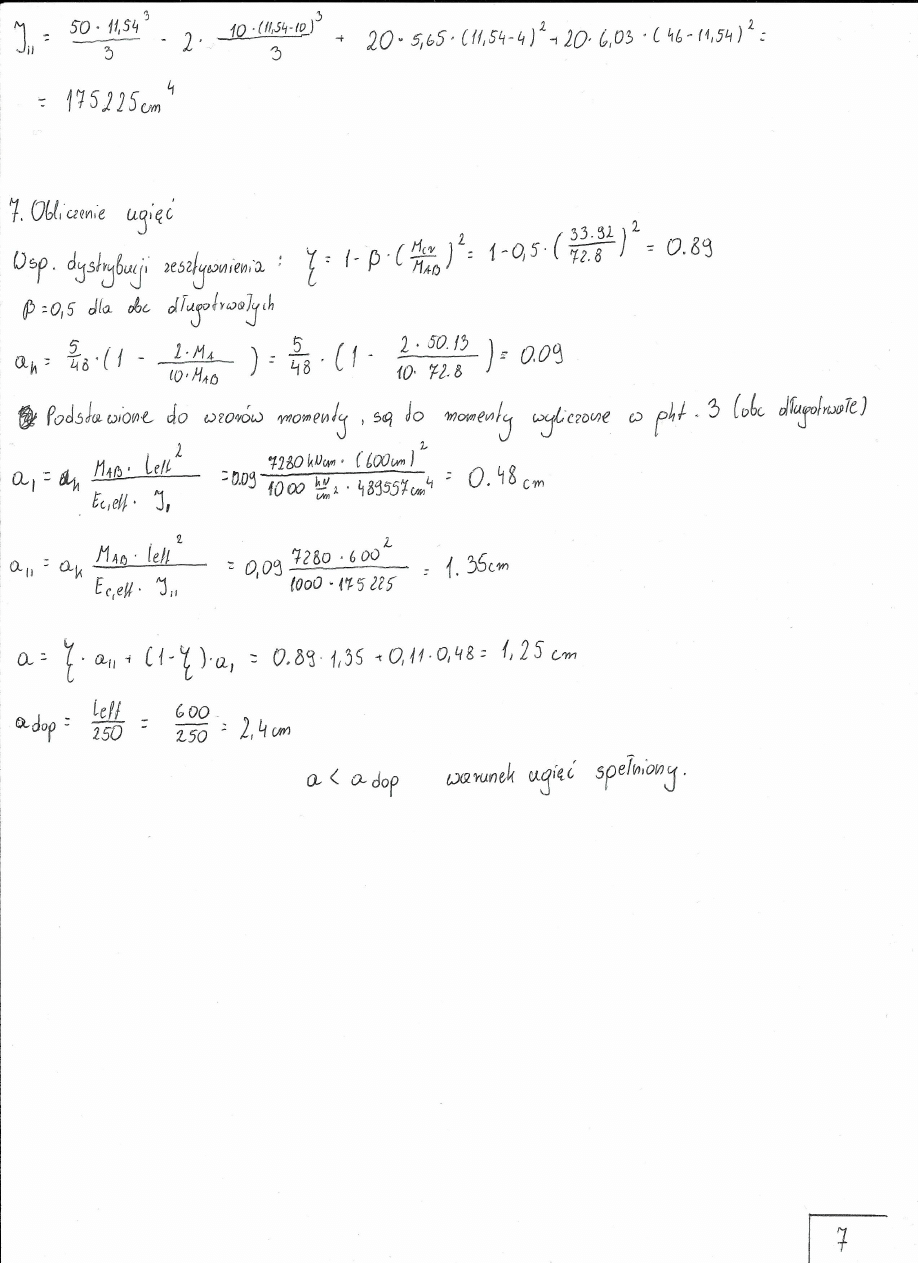 J₁₁ = 50 · 11,54³ / 3 - 2 · 10 · (11,54-10)³ / 3 + 20 · 5,65 · (11,54-4)² + 20 · 6,03 · (46-11,54)² =
= 175225 cm⁴
7. Obliczenie ugięć
Wsp. dystrybucji zesztywnienia : ζ = 1 - β · (Mcr / MAB)² = 1 - 0,5 · (33.92 / 72.8)² = 0.89
β = 0,5 dla obc długotrwałych
ak = 5/48 · (1 - 2 · MA / 10 · MAB) = 5/48 · (1 - 2 · 50.13 / 10 · 72.8) = 0.09
Podstawione do wzorów momenty, są to momenty wyliczone w pkt. 3 (obc długotrwałe)
a₁ = ak MAB · leff² / Ec,eff · J₁ = 0.09 7280 kNcm · (600cm)² / 1000 kN/cm² · 489557cm⁴ = 0.48 cm
a₁₁ = ak MAB · leff² / Ec,eff · J₁₁ = 0,09 7280 · 600² / 1000 · 175225 = 1.35cm
a = ζ · a₁₁ + (1-ζ) · a₁ = 0.89 · 1,35 + 0,11 · 0,48 = 1,25 cm
adop = leff / 250 = 600 / 250 = 2,4 cm
a < adop warunek ugięć spełniony.
7